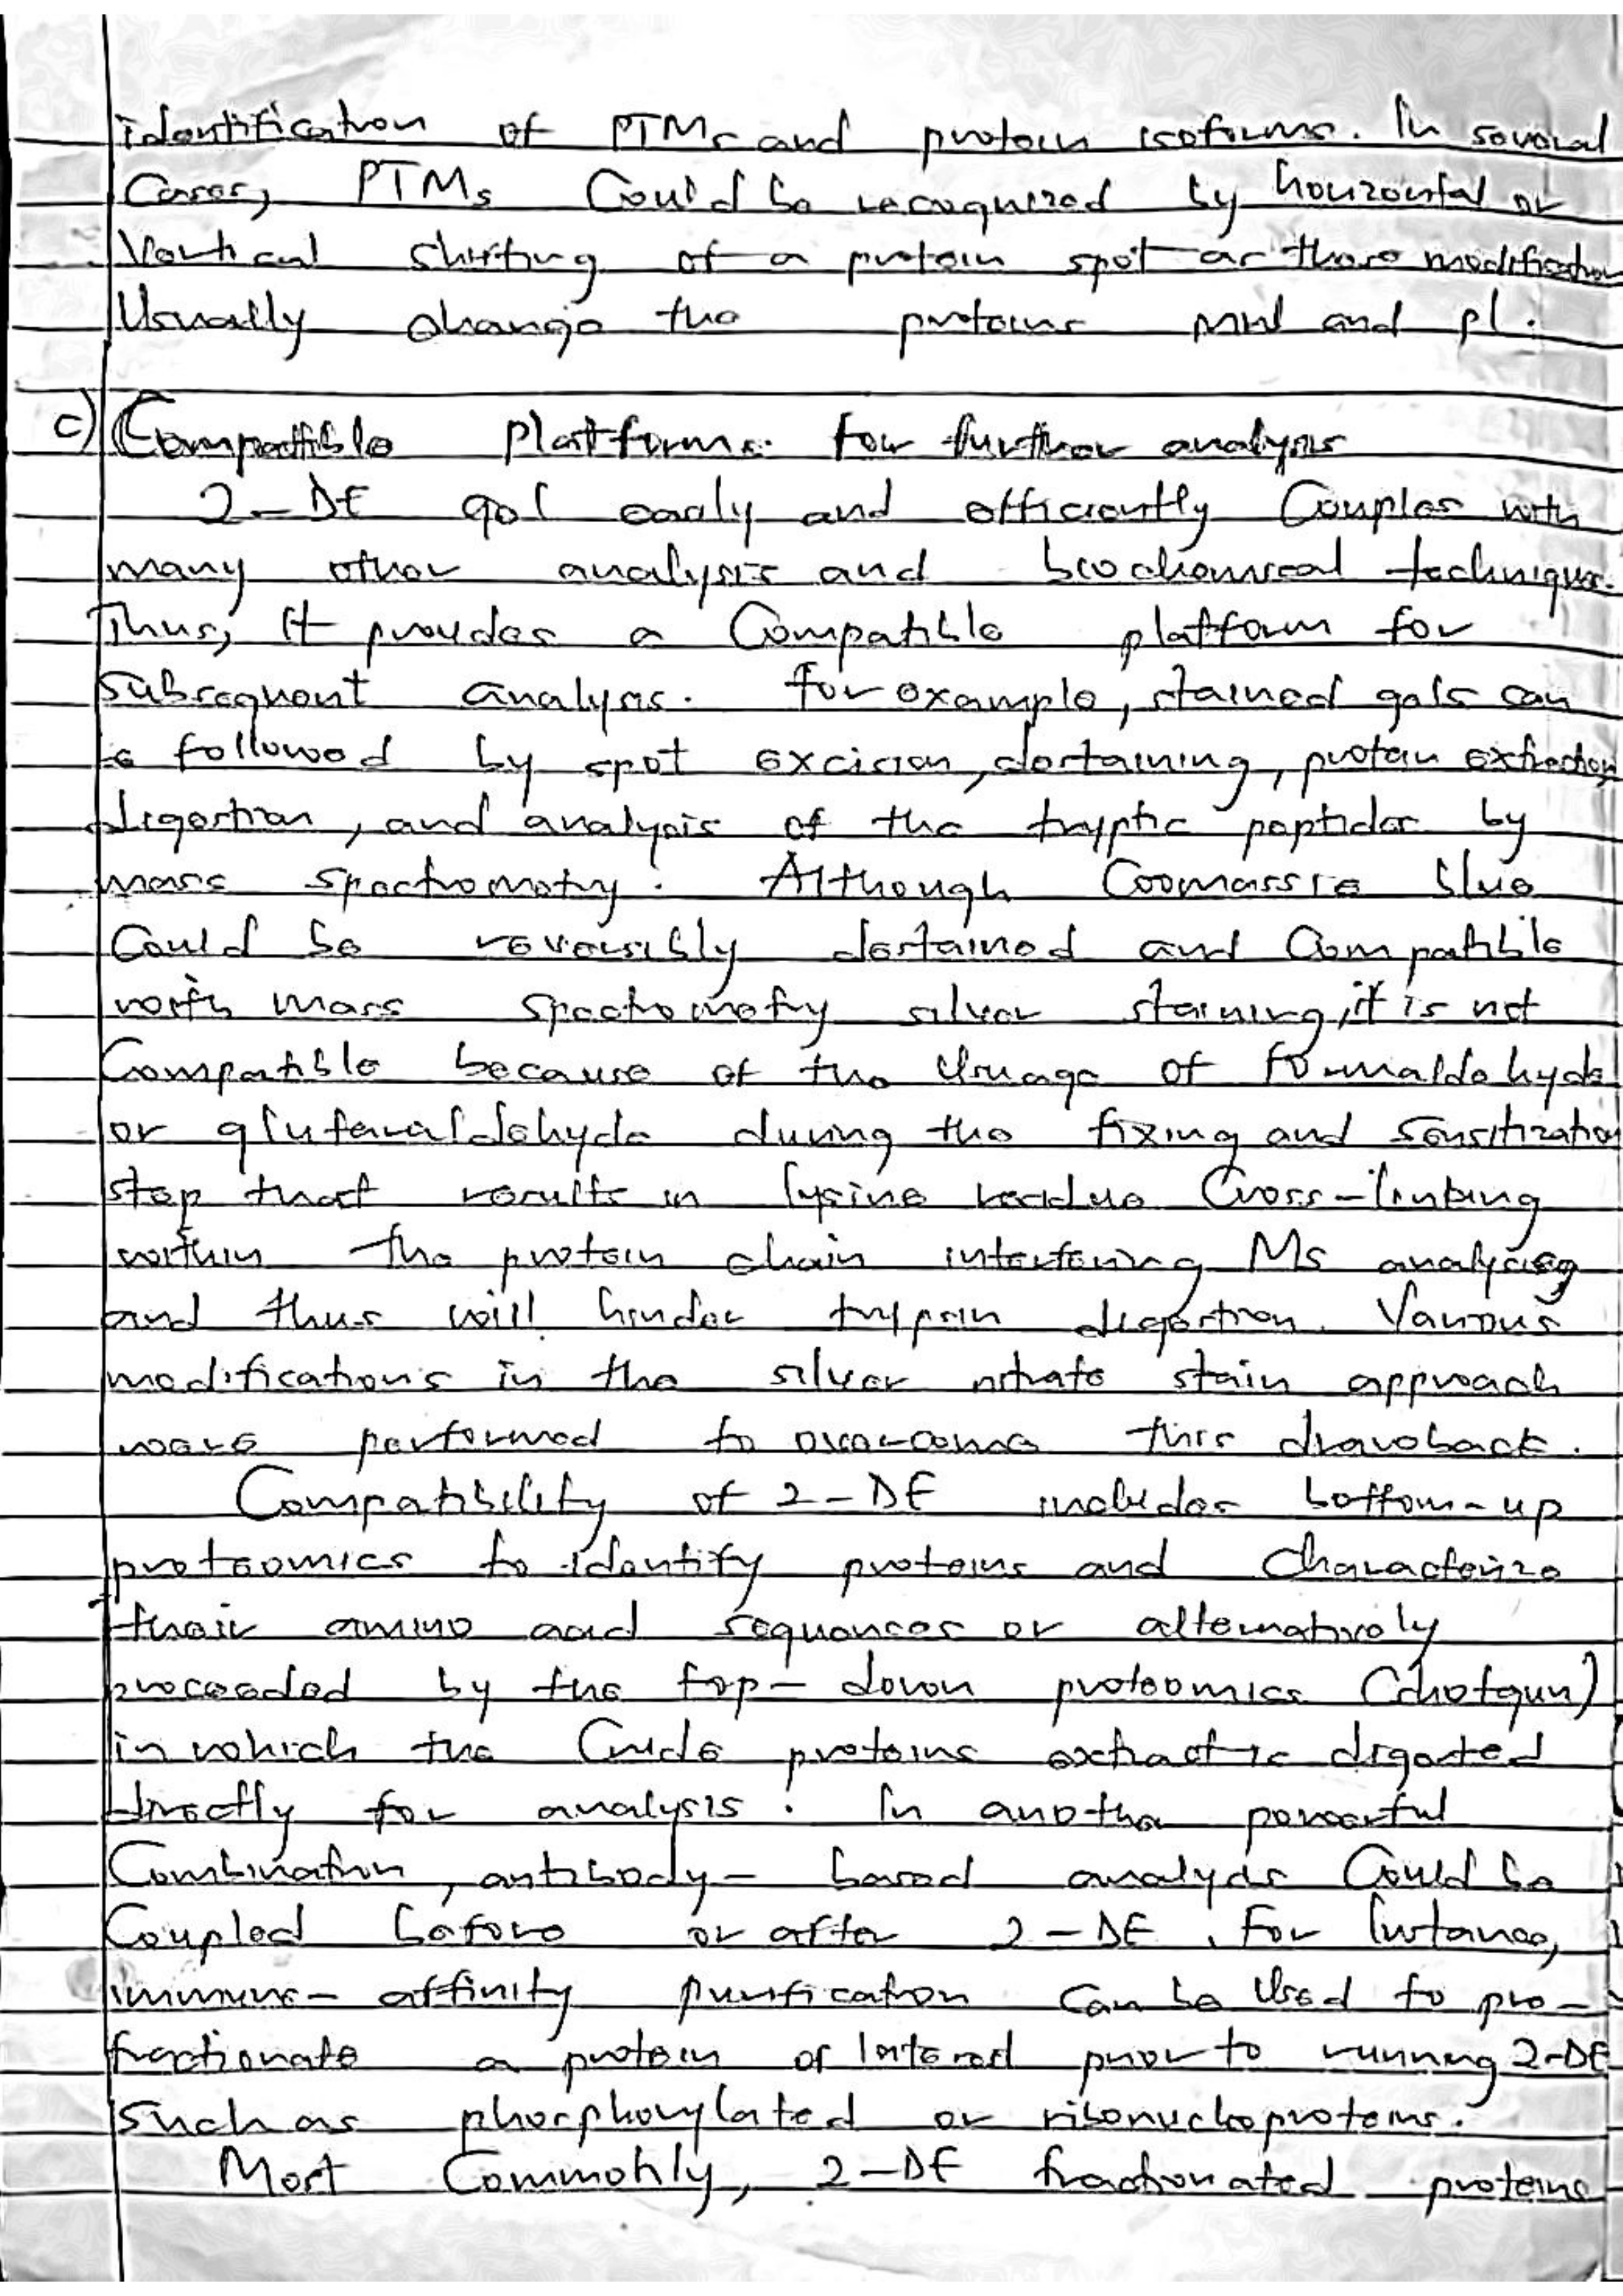 identification of PTMs and protein isoforms. In several
Cases, PTMs Could be recognized by horizontal or
Vertical shifting of a protein spot as these modification
Usually change the proteins MW and pI.
c) Compatible Platforms for further analysis
2-DE gel easly and efficiently Couples with
many other analysis and biochemical techniques.
Thus, it provides a Compatible platform for
subsequent analysis. for example, stained gels can
be followed by spot excision, destaining, protein extraction,
digestion, and analysis of the tryptic peptides by
mass spectrometry. Although Coomassie blue
Could be reversibly destained and Compatible
with mass spectrometry silver staining, it is not
Compatible because of the Usuage of formaldehyde
or glutaraldehyde during the fixing and sensitization
step that results in lysine residue Cross-linking
within the protein chain interfering MS analysing
and thus will hinder trypsin digestion. Various
modifications in the silver nitrate stain approach
were performed to overcome this drawback.
Compatibility of 2-DE includes bottom-up
proteomics to identify proteins and Characterize
their amino acid sequences or alternatively
proceeded by the top-down proteomics (shotgun)
in which the Crude proteins extract is digested
directly for analysis. In another powerful
Combination, antibody-based analysis Could be
Coupled before or after 2-DE. For Instance,
immune-affinity purification Can be Used to pre-
fractionate a protein of Interest prior to running 2-DE
such as phosphorylated or ribonucleoproteins.
Most Commonly, 2-DE fractionated proteins